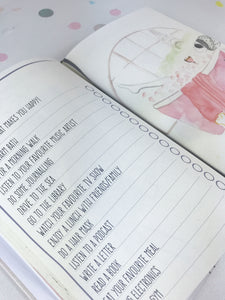 AT MAKES YOU HAPPY?
ARM BATH
OR A MORNING WALK
LISTEN TO YOUR FAVOURITE MUSIC ARTIST
DO SOME JOURNALLING
DRIVE TO THE SEA
GO TO THE LIBRARY
WATCH YOUR FAVOURITE TV SHOW
ENJOY A LUNCH WITH FRIENDS/FAMILY
DO A HAIR MASK
LISTEN TO A PODCAST
WRITE A LETTER
READ A BOOK
EAT YOUR FAVOURITE MEAL
ELECTRONICS